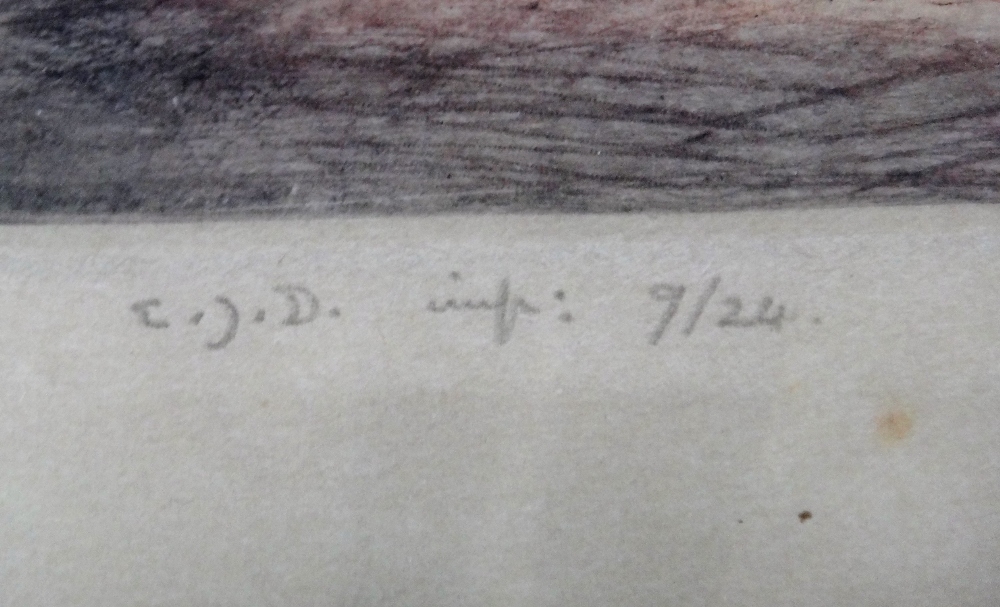 E.J.D. imp: 9/24.